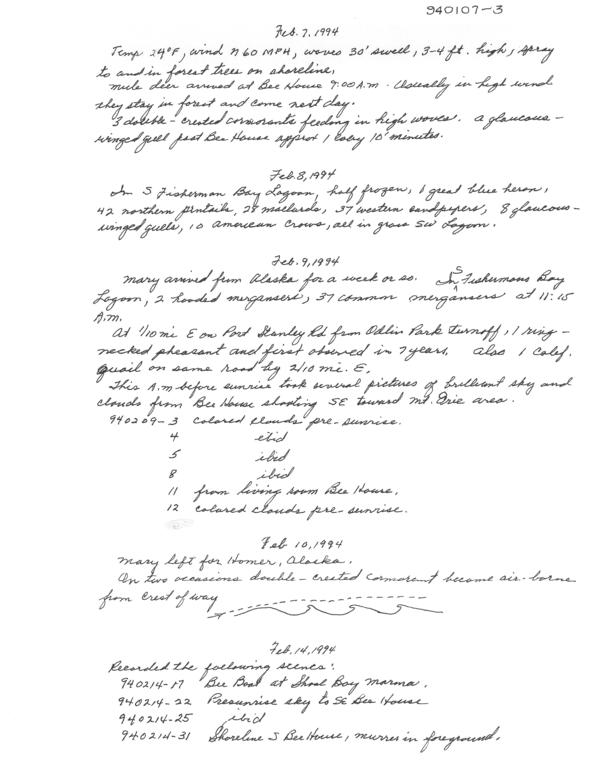 940107-3
Feb. 7, 1994
Temp 24°F, wind N 60 MPH, waves 30' swell, 3-4 ft. high, spray
to and in forest trees on shoreline,
mule deer arrived at Bee House 9:00 A.m. Usually in high wind
they stay in forest and come next day.
3 double-crested cormorants feeding in high waves. a glaucous-
winged gull past Bee House approx 1 every 10 minutes.
Feb. 8, 1994
In S Fisherman Bay Lagoon, half frozen, 1 great blue heron,
42 northern pintails, 28 mallards, 37 western sandpipers, 8 glaucous-
winged gulls, 10 american crows, all in grass SW Lagoon.
Feb. 9, 1994
Mary arrived from Alaska for a week or so. In S Fishermans Bay
Lagoon, 2 hooded mergansers, 37 common mergansers at 11:15
A.m.
At 1/10 mi E on Port Stanley Rd from Odlin Park turnoff, 1 ring-
necked pheasant and first observed in 7 years. Also 1 Calif.
quail on same road by 2/10 mi. E.
This A.m before sunrise took several pictures of brilliant sky and
clouds from Bee House shooting SE toward Mt. Erie area.
940209-3 colored clouds pre-sunrise.
4 ibid
5 ibid
8 ibid
11 from living room Bee House,
12 colored clouds pre-sunrise.
Feb 10, 1994
Mary left for Homer, Alaska.
On two occasions double-crested cormorant become air-borne
from crest of way
Feb. 14, 1994
Recorded the following scenes:
940214-17 Bee Boat at Shoal Bay Marina.
940214-22 Presunrise sky to SE Bee House
940214-25 ibid
940214-31 Shoreline S Bee House, murres in foreground.